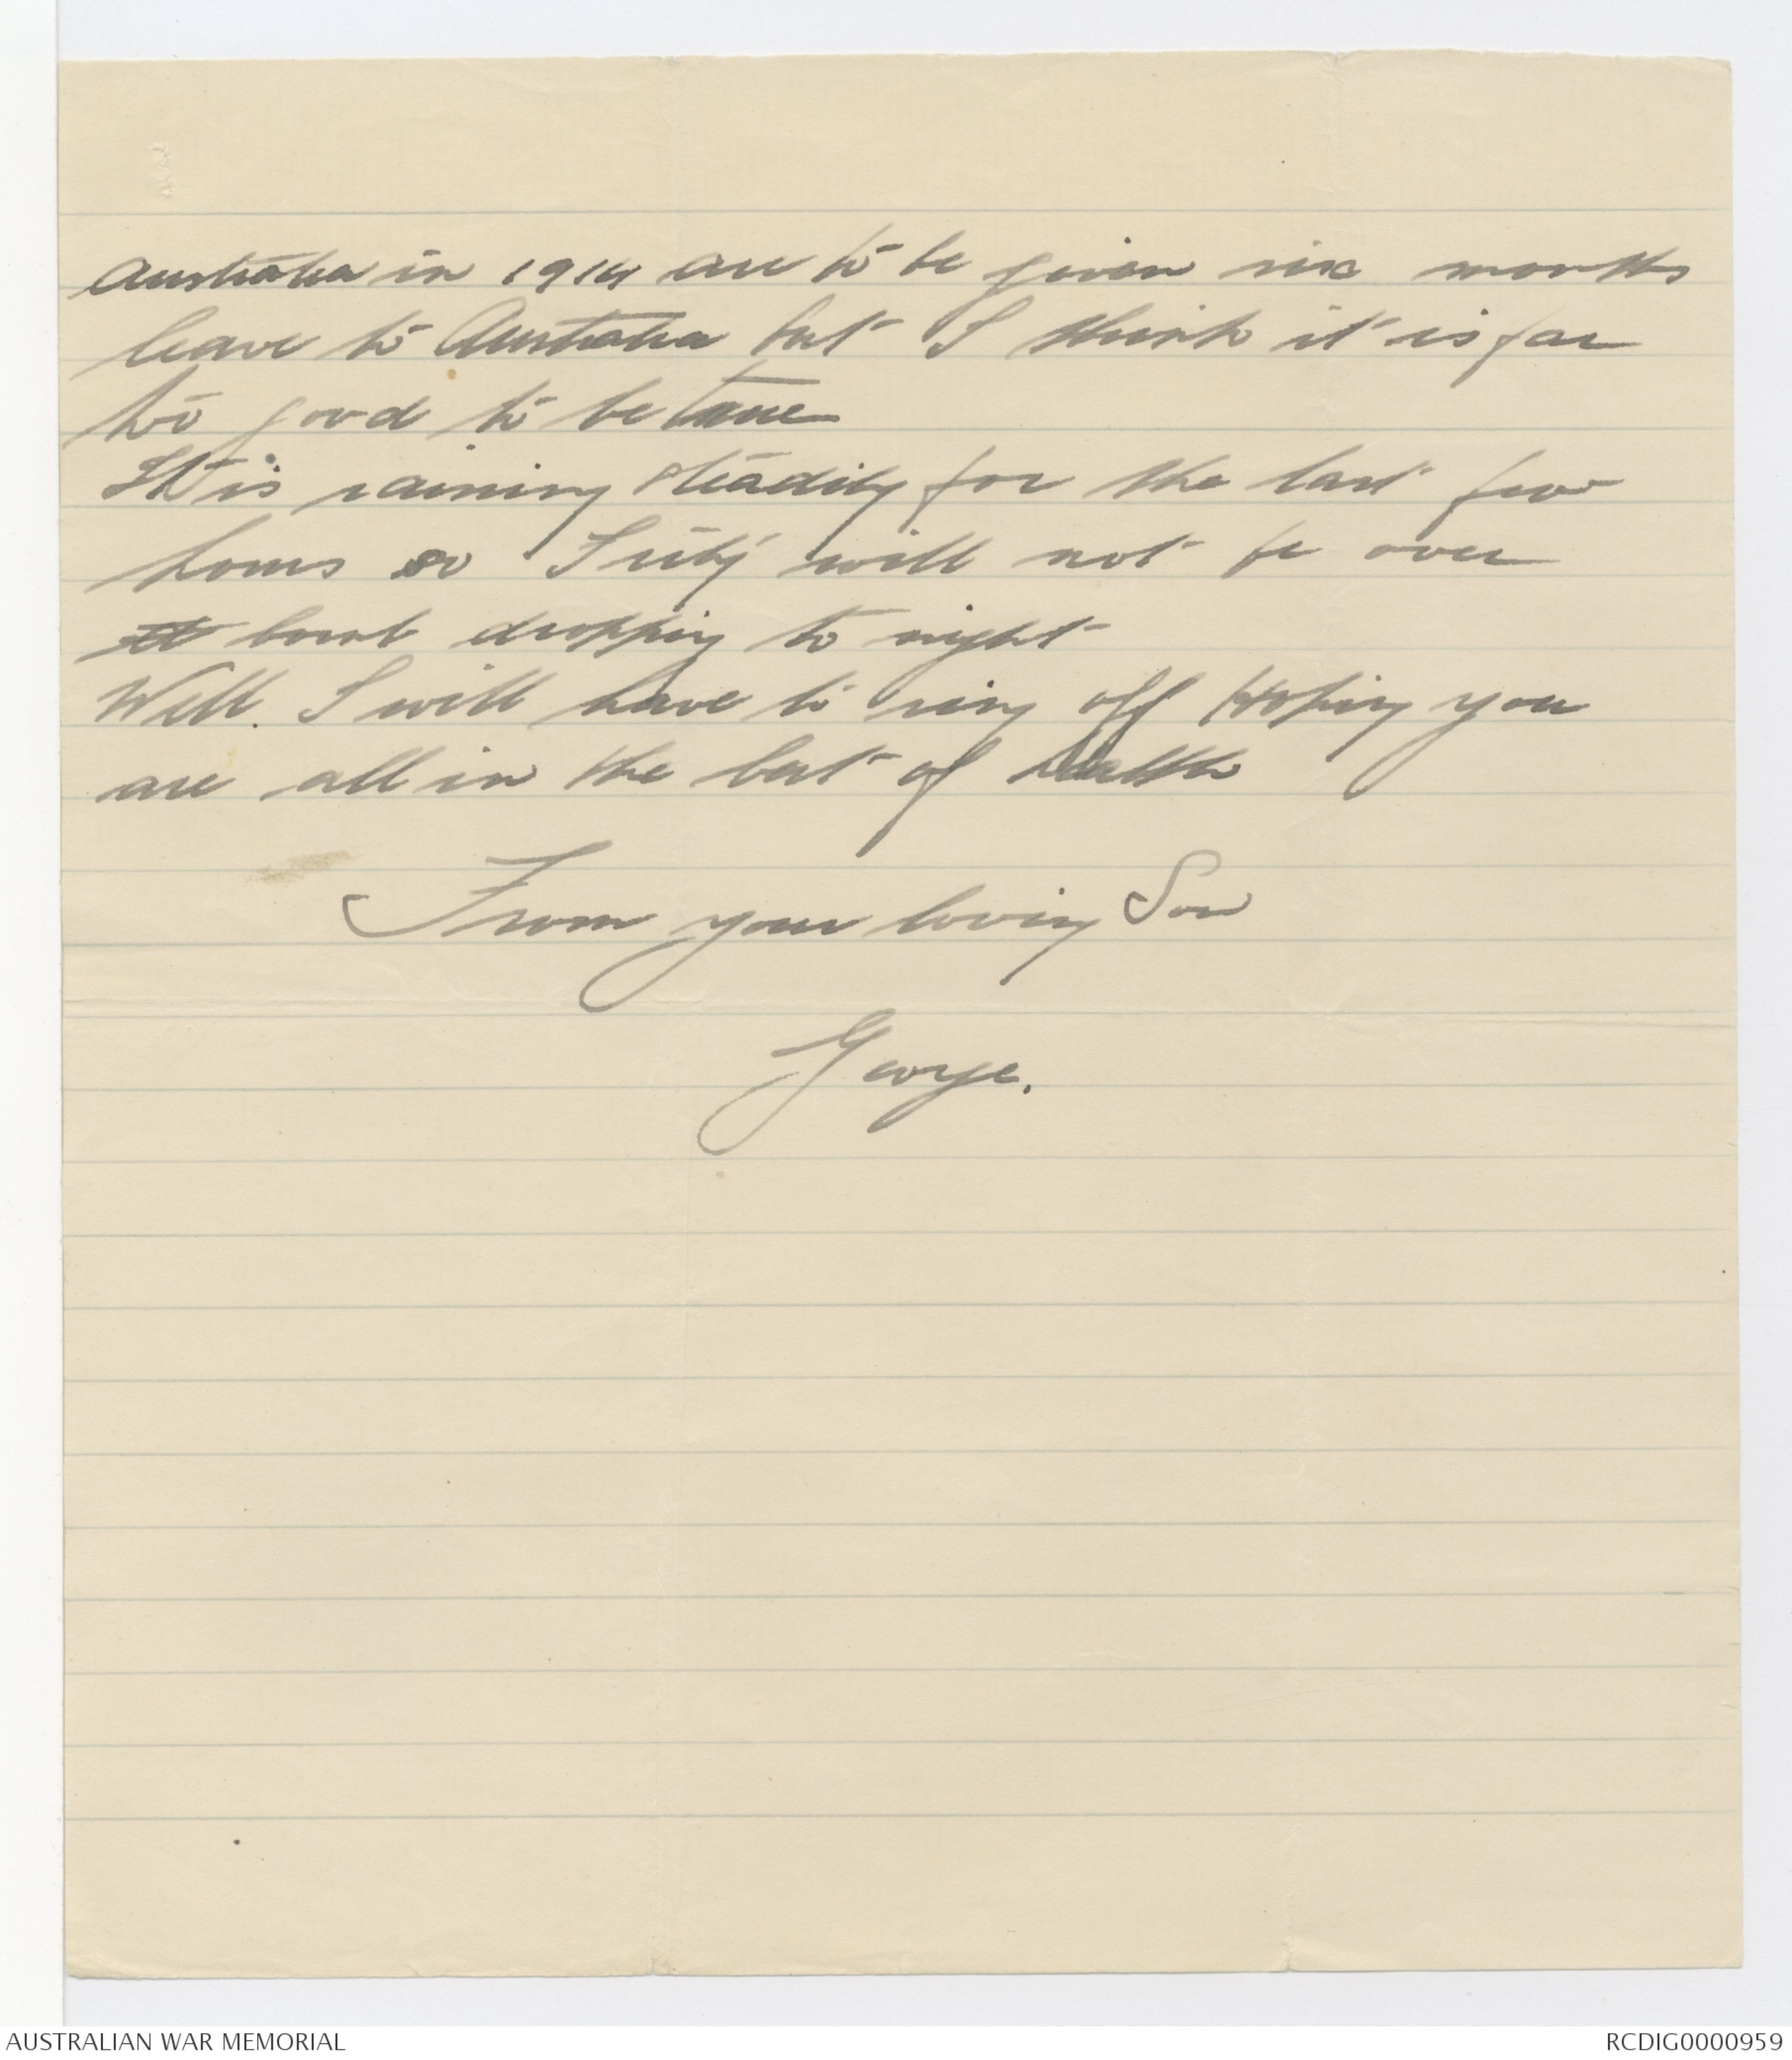 Australia in 1914 are to be given six months
leave to Australia but I think it is far
too good to be true
It is raining steadily for the last few
hours so Fritz will not be over
bomb dropping to night
Well. I will have to ring off Hoping you
are all in the best of health
From your loving Son
George.
AUSTRALIAN WAR MEMORIAL
RCDIG0000959